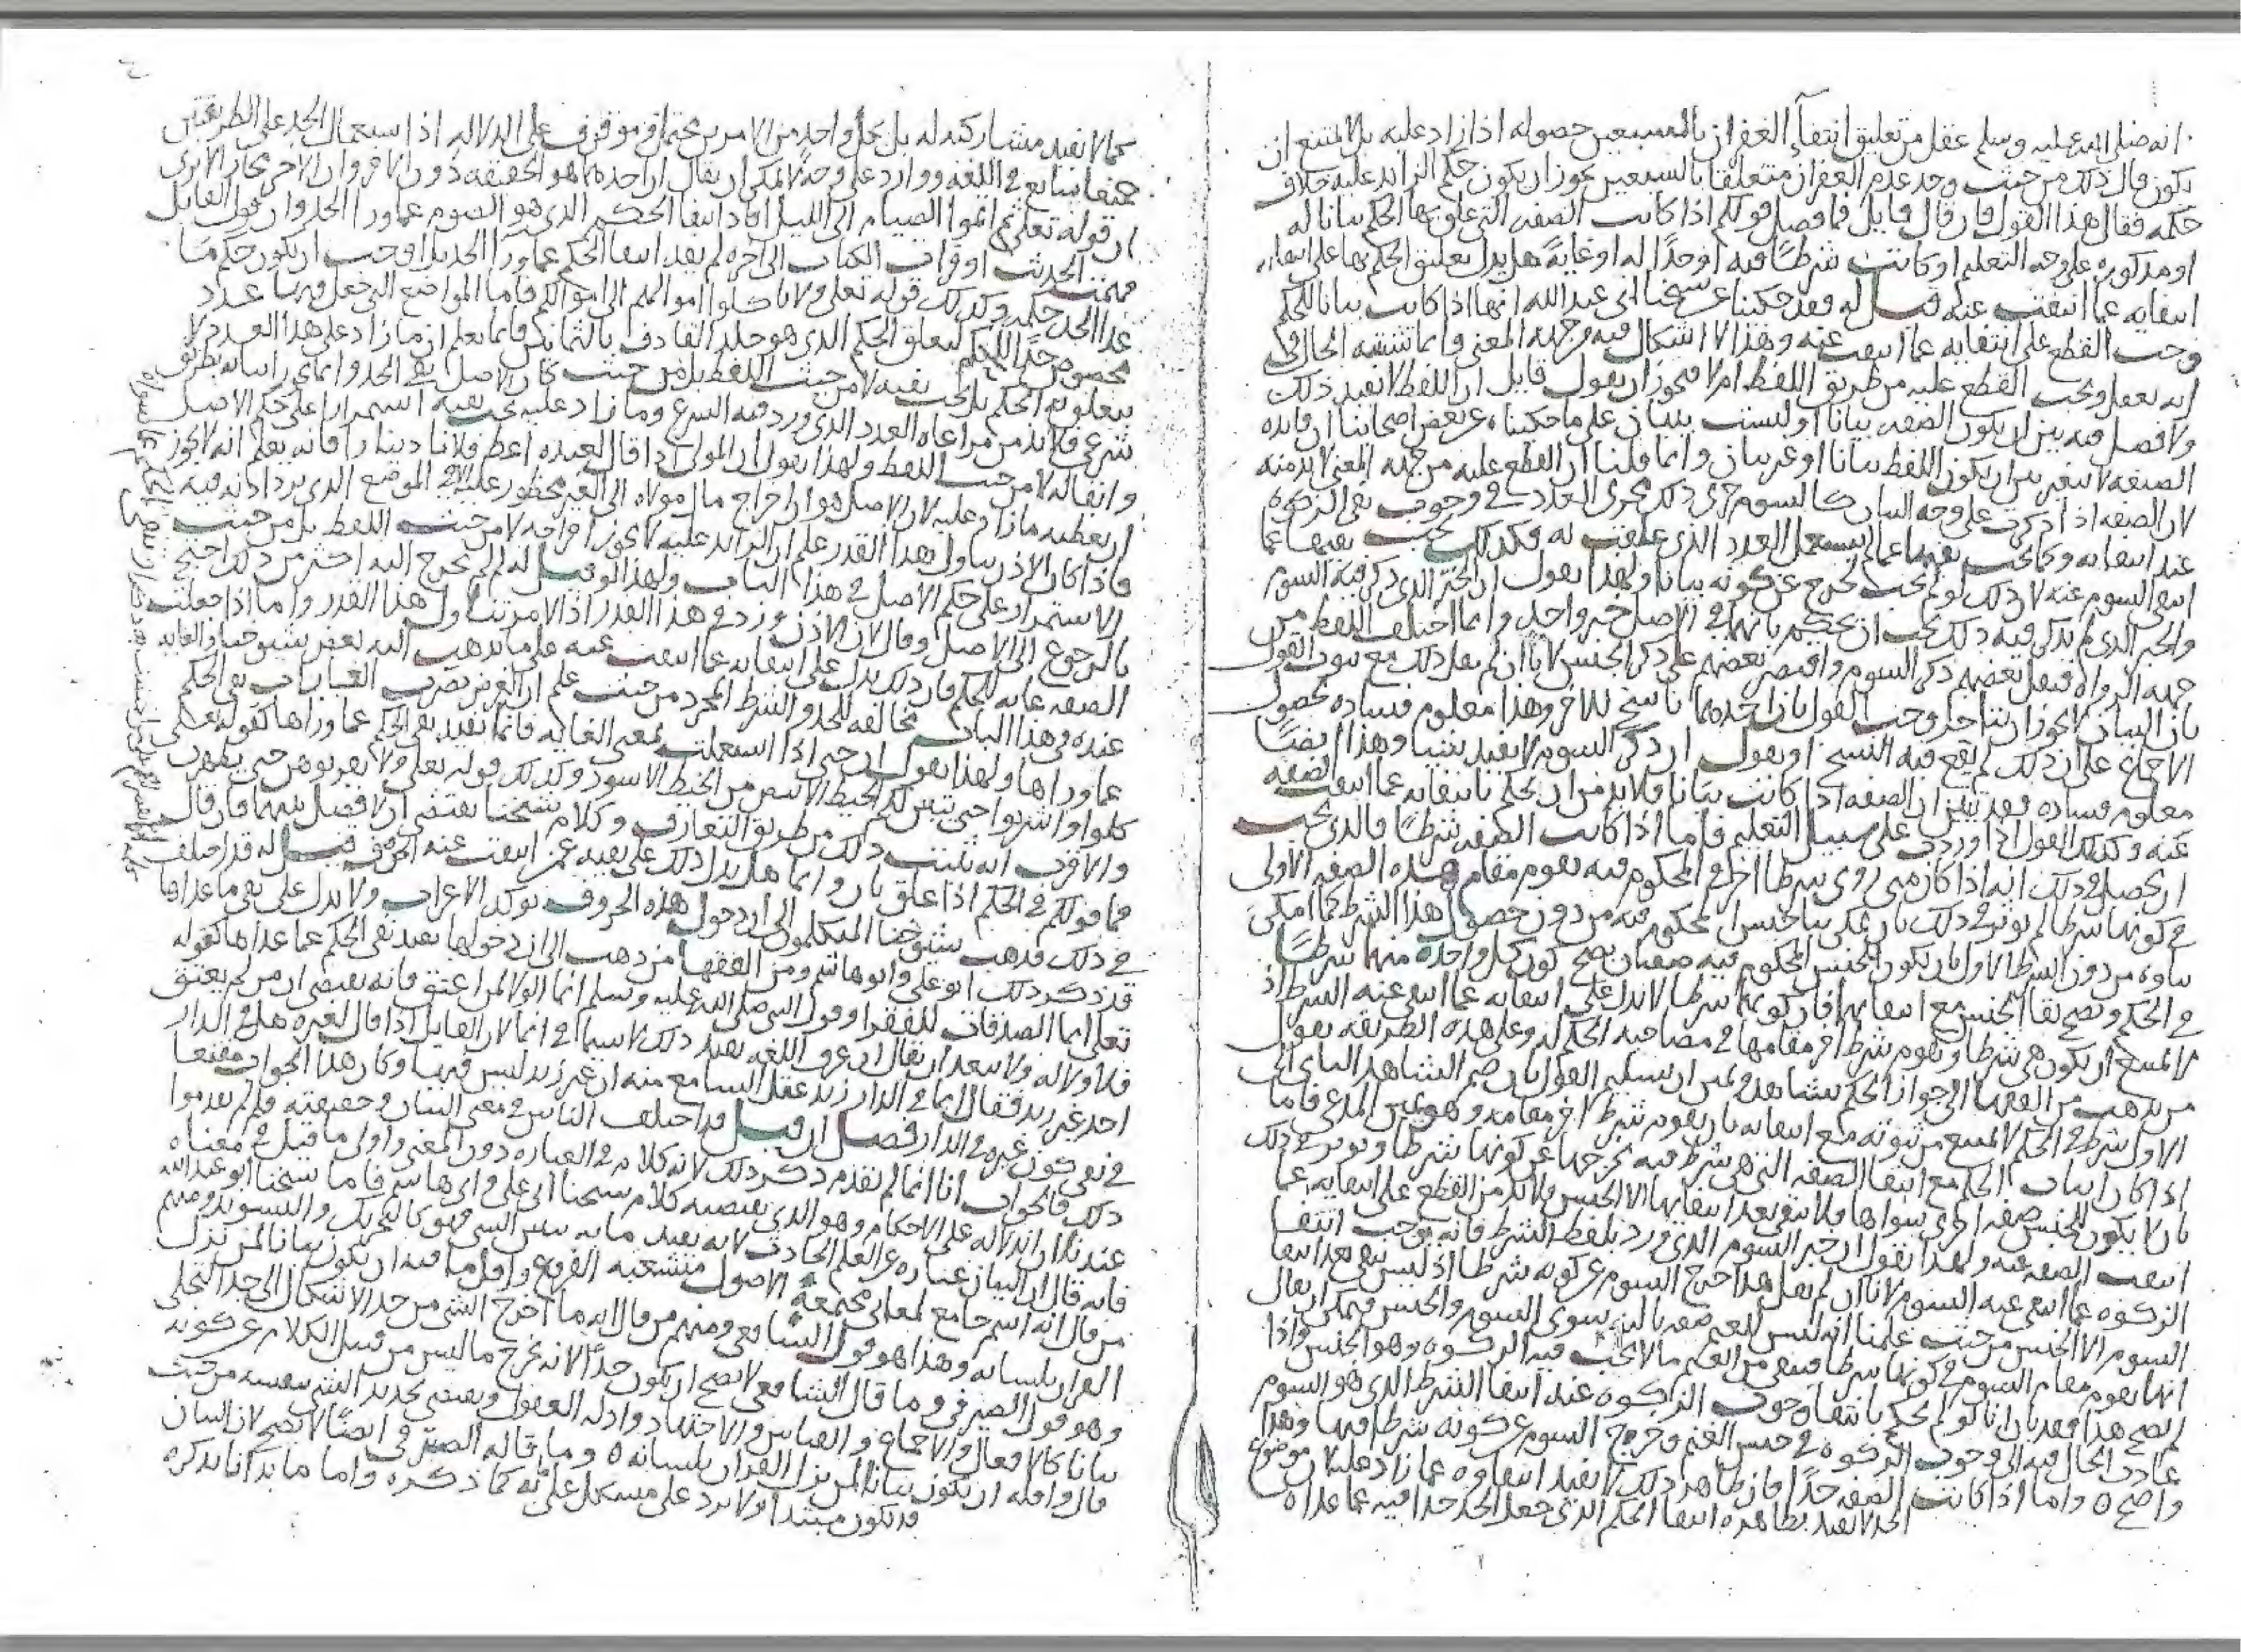 انه صلى الله عليه وسلم عقل من تعليق انتفاء الغفران بالسبعين حصوله اذا زاد عليه بل لا يمتنع ان
يكون قال ذلك من حيث وجد عدم الغفران متعلقا بالسبعين يجوز ان يكون حكم الزايد عليه خلاف
حكمه فقال هذا القول فان قال قايل فما فصل قولكم اذا كانت الصفه التي علق بها الحكم بيانا له
او مذكوره على وجه التعليم او كانت شرطا فيه او حدا له او غاية هل يدل تعليق الحكم بها على
انتفايه عما انتفت عنه قيل له فقد حكينا عن شيخنا ابي عبد الله انها اذا كانت بيانا للحكم
وجب القطع على انتفايه عما انتفت عنه وهذا لا اشكال فيه من جهه المعنى وانما تشتبه الحال في
انه يعقل ويجب القطع عليه من طريق اللفظ ام لا فيجوز ان يقول قايل ان اللفظ لا يفيد ذلك
ولا فصل فيه بين ان يكون الصفه بيانا او ليست ببيان على ما حكيناه عن بعض اصحابنا ان فايده
الصفه لا تتغير بين ان يكون اللفظ بيانا او غير بيان وانما قلنا ان القطع عليه من جهه المعنى لا بد منه
لان الصفه اذا ذكرت على وجه البيان كالسوم جرى ذلك مجرى العدد في وجوب نفي الزكوه
عند انتفايه وكما يجب نفيها عما لم يستعمل العدد الذي علقت به فكذلك يجب نفيها عما
انتفى السوم عنه لان ذلك لو لم يجب لخرج عن كونه بيانا ولهذا نقول ان الخبر الذي ذكر فيه السوم
والخبر الذي لم يذكر فيه ذلك يجب ان يحكم بانهما في الاصل خبر واحد وانما اختلف اللفظ من
جهه الرواه فنقل بعضهم ذكر السوم واقتصر بعضهم على ذكر الجنس لانا ان لم نقل ذلك مع ثبوت القول
بان البيان لا يجوز ان يتاخر وجب القول بان احدهما ناسخ للاخر وهذا معلوم فساده لحصول
الاجماع على ان ذلك لم يقع فيه النسخ او نقول ان ذكر السوم لا يفيد شيئا وهذا ايضا
معلوم فساده فقد تبين ان الصفه اذا كانت بيانا فلا بد من ان نحكم بانتفايه عما انتفت الصفه
عنه وكذلك القول اذا وردت على سبيل التعليم فاما اذا كانت الصفه شرطا فالذي يجب
ان يحصل في ذلك انه اذا كان متى روي شرطا اخر في المحكوم فيه يقوم مقام هذه الصفه الاولى
في كونها شرطا لم يوثر في ذلك بان يمكن بقا الجنس المحكوم فيه من دون حصول هذا الشرط كما امكن
بقاوه من دون الشرط الاول بان يكون الجنس المحكوم فيه صفتان يصح كون كل واحده منهما شرطا
في الحكم ويصح بقا الجنس مع انتفايهما فان كونها شرطا لا تدل على انتفايه عما انتفى عنه الشرط اذ
لا يمتنع ان يكون هي شرطا ويقوم شرط اخر مقامها في مصاحبه الحكم له وعلى هذه الطريقه يقول
من يذهب من الفقها الى جواز الحكم بشاهد ويمين ان تسليم القول بان ضم الشاهد الثاني الى
الاول شرط في الحكم لا يمنع من ثبوته مع انتفايه بان يقوم شرط اخر مقامه وهو يمين المدعي فاما
اذا كان اثبات الحكم مع انتفا الصفه التي هي شرط فيه يخرجها عن كونها شرطا ويوثر في ذلك
بان لا يكون للجنس صفه اخرى سواها ولا تبقى بعد انتفايها الا الجنس فلا بد من القطع على انتفايه عما
انتفت الصفه عنه ولهذا نقول ان خبر السوم الذي ورد بلفظ الشرط فانه يوجب انتفا
الزكوه عما انتفى عنه السوم لانا ان لم نقل بهذا خرج السوم عن كونه شرطا اذ ليس يبقى بعد انتفا
السوم الا الجنس من حيث علمنا انه ليس للغنم صفه ثالثه سوى السوم والجنس فيمكن ان يقال
انها يقوم مقام السوم في كونها شرطا فينفى من الغنم ما لا يجب فيه الزكوه وهو الجنس واذا
اتضح هذا فقد بان انا لو لم نحكم بانتفا وجوب الزكوه عند انتفا الشرط الذي هو السوم
عادت الحال فيه الى وجوب الزكوه في جنس الغنم وخرج السوم عن كونه شرطا فيها وهذا
واضح ٥ واما اذا كانت الصفه حدا فان ظاهر ذلك لا يفيد انتفاوه عما زاد عليه لان موضوع
الحد لا يفيد بظاهره انتفا الحكم الذي جعل الحد حدا فيه عما عداه
كما لا يفيد مشاركته له بل كل واحد من الامرين محتمل موقوف على الدلاله اذ استعمال الحد على الطريقتين
جميعا شايع في اللغه ووارد على وجه لا يمكن ان يقال ان احدهما هو الحقيقه دون الاخر وان الاخر مجاز الا ترى
ان قوله تعالى ثم اتموا الصيام الى الليل افاد انتفا الحكم الذي هو الصوم عما ورا الحد وان قول القايل
فهمت الحديث او قرات الكتاب الى اخره لم يفد انتفا الحكم عما ورا الحد بل اوجب ان يكون حكم ما
عدا الحد حكمه وكذلك قوله تعالى ولا تاكلوا اموالهم الى اموالكم فاما المواضع التي جعل فيها عدد
مخصوص حدا للحكم كتعلق الحكم الذي هو جلد القاذف بالثمانين فانما يعلم ان ما زاد على هذا العدد لا
يتعلق به الحكم بل يجب نفيه لا من حيث اللفظ بل من حيث كان الاصل نفي الحد وانما ورد اثباته بطريق
شرعي فلا بد من مراعاه العدد الذي ورد فيه الشرع وما زاد عليه يجب نفيه استمرارا على حكم الاصل
وانتفايه لا من حيث اللفظ ولهذا نقول ان المولى اذا قال لعبده اعط فلانا دينارا فانه يعلم انه لا يجوز
ان يعطيه ما زاد عليه لان الاصل هو ان اخراج مال مولاه الى الغير محظور عليه الا في الموضع الذي يرد اذنه فيه
فاذا كان الاذن يتناول هذا القدر علم ان الزايد عليه لا يجوز اخراجه لا من حيث اللفظ بل من حيث
الاستمرار على حكم الاصل في هذا الباب ولهذا لو قيل له لم لم تخرج اليه اكثر من ذلك احتج
بالرجوع الى الاصل وقال لان الاذن ورد في هذا القدر اذ الامر تناول هذا القدر واما اذا جعلت
الصفه غايه للحكم فان ذلك يدل على انتفايه عما انتفت عنه على ما يذهب اليه بعض شيوخنا والغايه
عنده في هذا الباب مخالفه للحد والشرط المجرد من حيث علم ان الغرض بضرب الغايات نفي الحكم
عما وراها ولهذا نقول ان حتى اذا استعملت بمعنى الغايه فانما تفيد نفي الحكم عما وراها كقوله تعالى
كلوا واشربوا حتى يتبين لكم الخيط الابيض من الخيط الاسود وكذلك قوله تعالى ولا تقربوهن حتى يطهرن
والاقرب انه يثبت ذلك من طريق التعارف وكلام شيخنا يقتضي ان لا فصل بينهما فان قال
فما قولكم في الحكم اذا علق بان وانما هل يدل ذلك على نفيه عمن انتفت عنه الحروف قيل له قد اختلف
في ذلك فذهب شيوخنا المتكلمون الى ان دخول هذه الحروف توكد الاعراب ولا يدل على نفي ما عداها
قد ذكر ذلك ابو علي وابو هاشم ومن الفقها من ذهب الى ان دخولها يفيد نفي الحكم عما عداها كقوله
تعالى انما الصدقات للفقرا وقول النبي صلى الله عليه وسلم انما الولا لمن اعتق فانه يقتضي ان من لم يعتق
فلا ولا له ولا يبعد ان يقال ان عرف اللغه يفيد ذلك لا سيما في انما لان القايل اذا قال لغيره هل في الدار
احد غير زيد فقال انما في الدار زيد عقل السامع منه ان غير زيد ليس فيها وكان هذا الجواب مقنعا
في نفي كون غيره في الدار فصل ان قيل قد اختلف الناس في معنى البيان وحقيقته فلم لم تقدموا
ذلك فالجواب انا انما لم نقدم ذكر ذلك لانه كلام في العباره دون المعنى واولى ما قيل في معناه
عندنا انه الدلاله على الاحكام وهو الذي يقتضيه كلام شيخنا ابي علي وابي هاشم فاما شيخنا ابو عبد الله
فانه قال ان البيان عباره عن العلم الحادث لانه يفيد ما به يتبين الشي فهو كالتحريك والتسويد ومنهم
من قال انه اسم جامع لمعاني مجتمعه الاصول متشعبه الفروع واقل ما فيه ان يكون بيانا لمن نزل
القران بلسانه وهذا هو قول الشافعي ومنهم من قال انه ما اخرج الشي من حد الاشكال الى حد التجلي
وهو قول الصيرفي وما قال الشافعي لا يصح ان يكون حدا لانه يخرج ما ليس من قبيل الكلام عن كونه
بيانا كالافعال والاجماع والقياس والاجتهاد وادله العقول ويقتضي تحديد الشي بنفسه من حيث
قال واقله ان يكون بيانا لمن نزل القران بلسانه ٥ وما قاله الصيرفي ايضا لا يصح لان البيان
قد يكون مبتدا ولا يرد على مشكل على انه كما ذكره واما ما بدانا بذكره